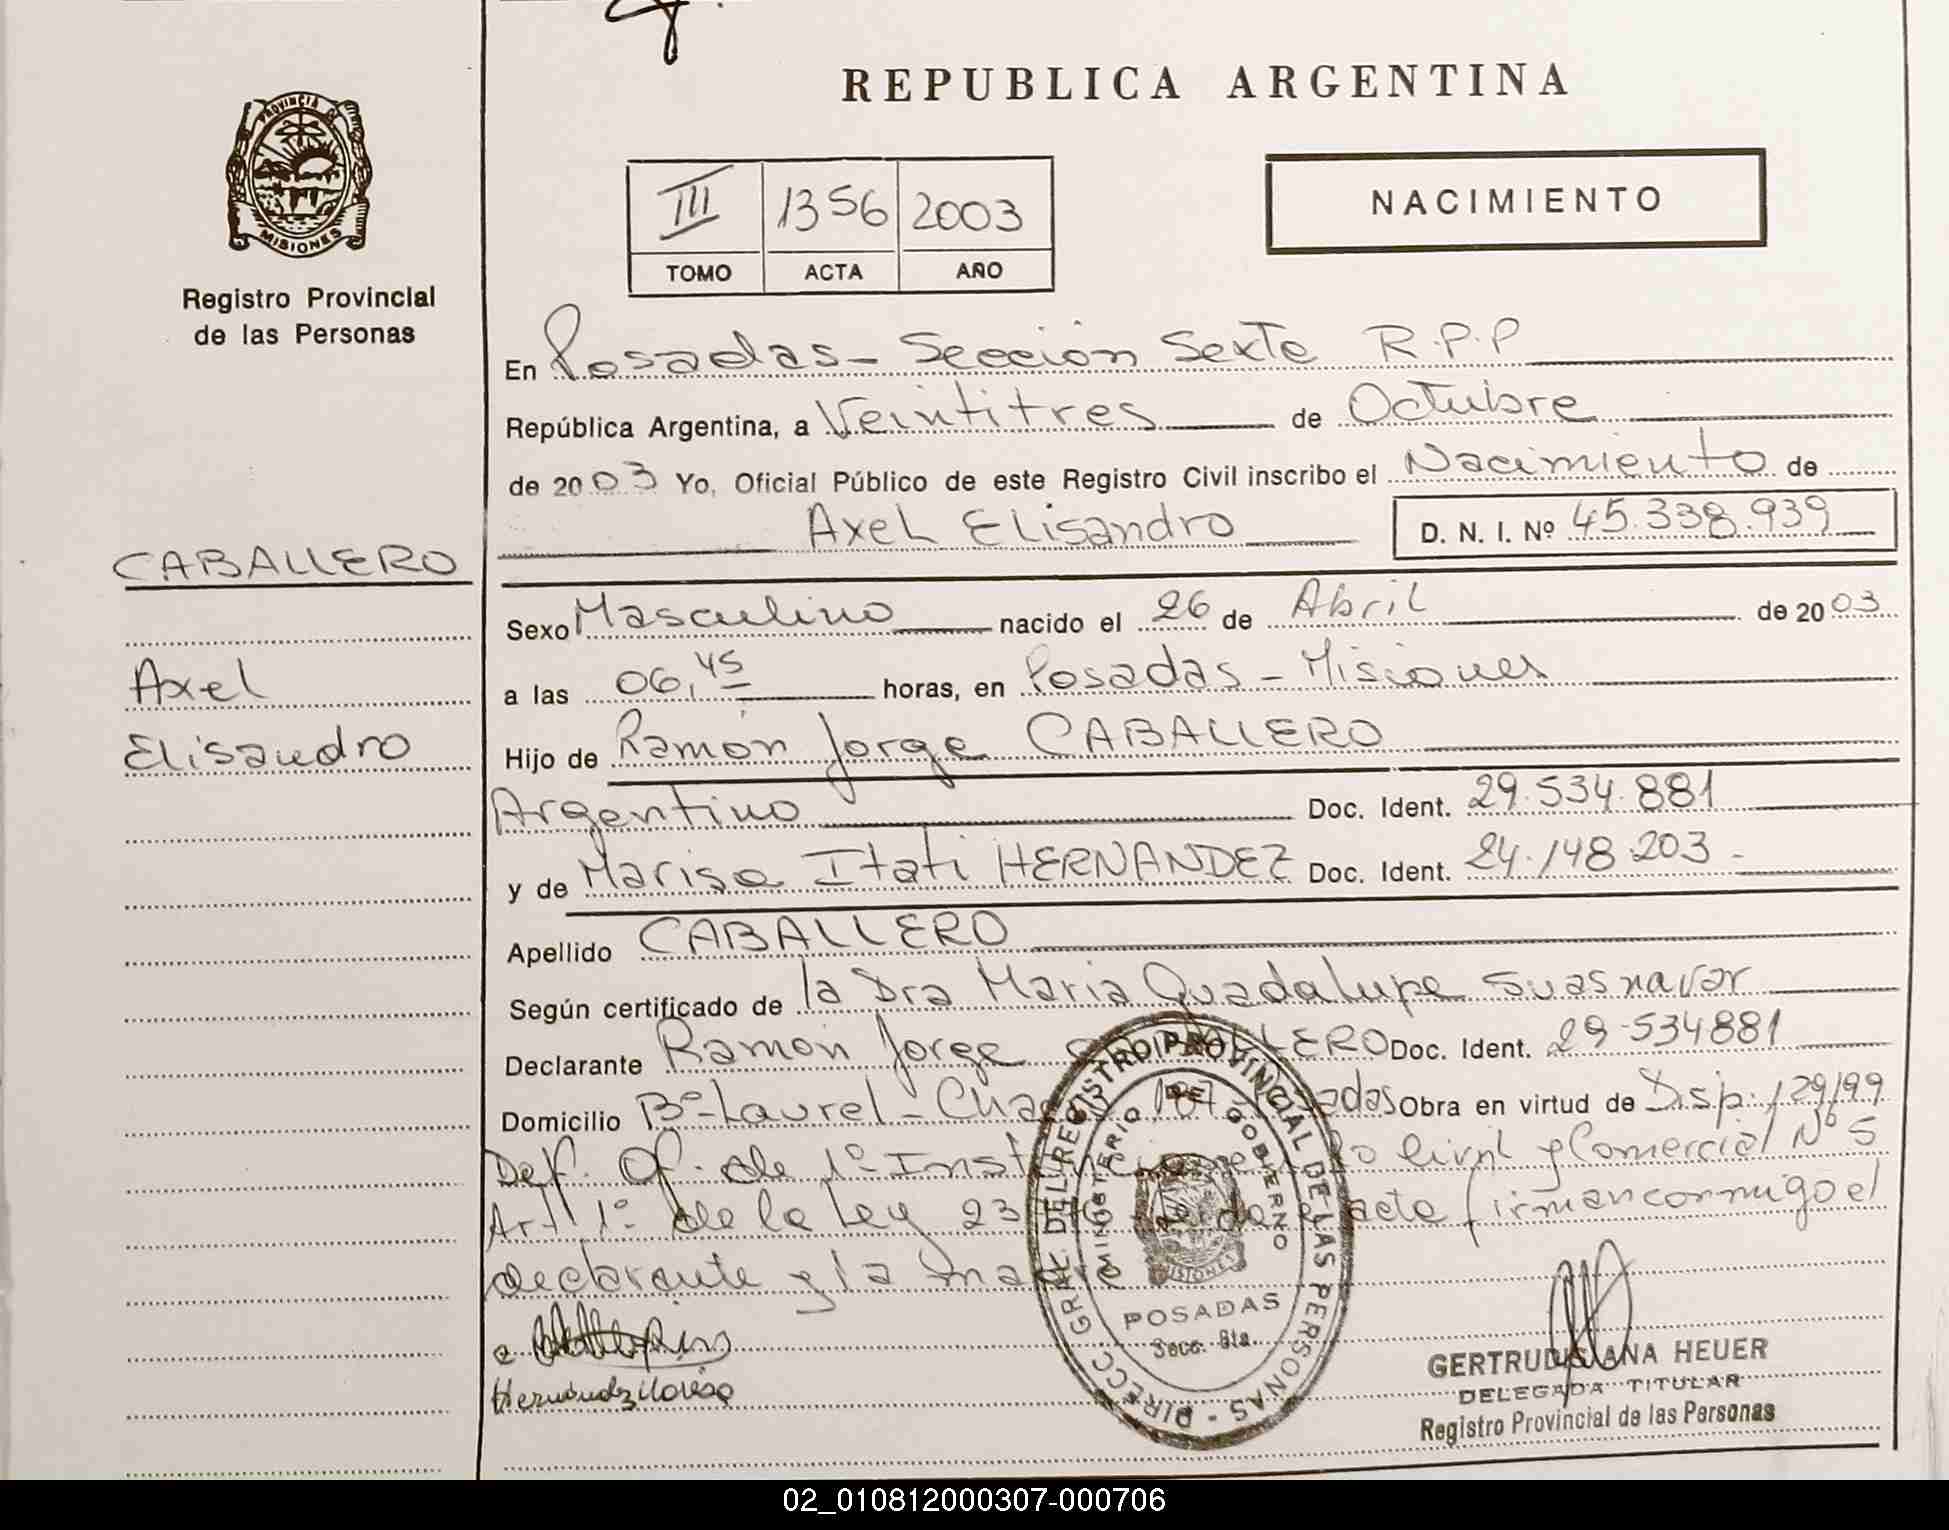 REPUBLICA ARGENTINA
PROVINCIA DE
MISIONES
Registro Provincial
de las Personas
III 1356 2003
TOMO ACTA AÑO
NACIMIENTO
En Posadas - Sección Sexta R.P.P
República Argentina, a Veintitres de Octubre
de 2003 Yo, Oficial Público de este Registro Civil inscribo el Nacimiento de
Axel Elisandro D. N. I. Nº 45.338.939
CABALLERO
Axel
Elisandro
Sexo Masculino nacido el 26 de Abril de 2003
a las 06,45 horas, en Posadas - Misiones
Hijo de Ramón Jorge CABALLERO
Argentino Doc. Ident. 29.534.881
y de Marisa Itati HERNANDEZ Doc. Ident. 24.148.203 -
Apellido CABALLERO
Según certificado de la Dra Maria Guadalupe Suasnavar
Declarante Ramón Jorge CABALLERO Doc. Ident. 29.534881
Domicilio Bº-Laurel - 187 - Posadas Obra en virtud de Disp. 129/99
Def. Of. de 1º Inst Civil y Comercial Nº 5
Art 1º de la Ley 23 acta firman conmigo el
declarante y la madre
Hernández Marisa
DIRECC. GRAL. DEL REGISTRO PROVINCIAL DE LAS PERSONAS -
MINISTERIO DE GOBIERNO
MISIONES
POSADAS
Secc. 6ta.
GERTRUDIS ANA HEUER
DELEGADA TITULAR
Registro Provincial de las Personas
02_010812000307-000706